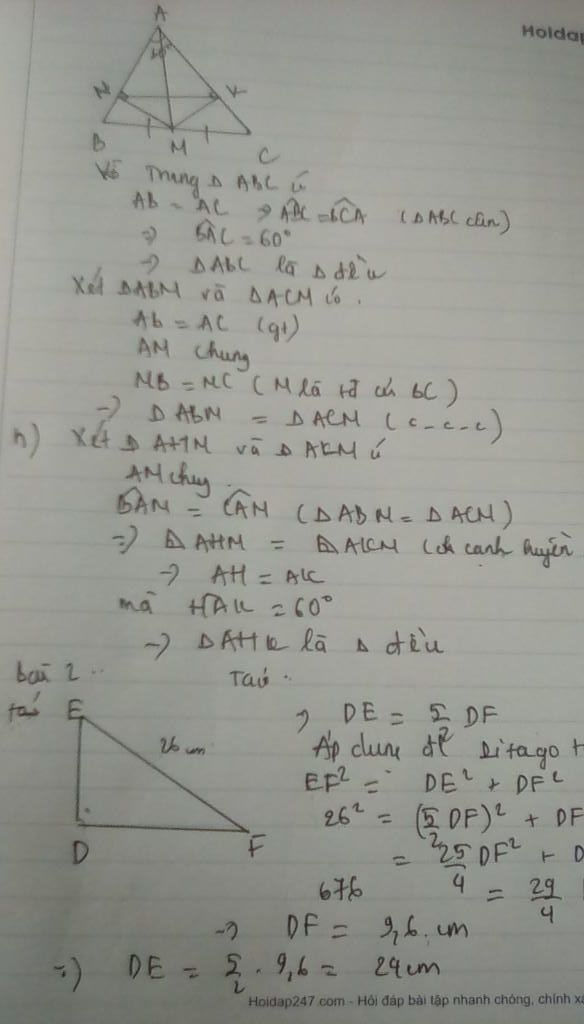 Hoidap
A
60°
N K
B M C
Vẽ Trong Δ ABC có
AB = AC => ABC = BCA (ΔABC cân)
=> BAC = 60°
-> ΔABC là Δ đều
Xét ΔABM và ΔACM có.
Ab = AC (gt)
AM chung
MB = MC (M là tđ của BC)
-> ΔABM = ΔACM (c-c-c)
h) Xét Δ AHM và Δ AKM có
AM chung.
BAM = CAM (ΔABM = ΔACM)
=> ΔAHM = ΔAKM (ch cạnh huyền
-> AH = AK
mà HAK = 60°
-> ΔAHK là Δ đều
Bài 2 ..
Ta có
ta có
E
26 cm
D F
=> DE = 5/2 DF
Áp dụng đl Pitago
EF² = DE² + DF²
26² = (5/2 DF)² + DF
= 25/4 DF² + D
676 = 29/4
-> DF = 9,6 cm
=> DE = 5/2 . 9,6 = 24cm
Hoidap247.com - Hỏi đáp bài tập nhanh chóng, chính xá